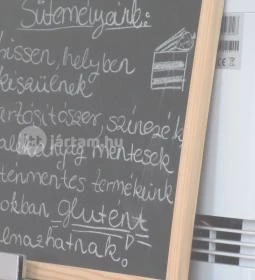 Süteményeink:
rissen, helyben
készülnek
tartósítószer, színezék
allékanyag mentesek
tenmentes termékeink
okban glutént
lmazhatnak.
jártam.hu